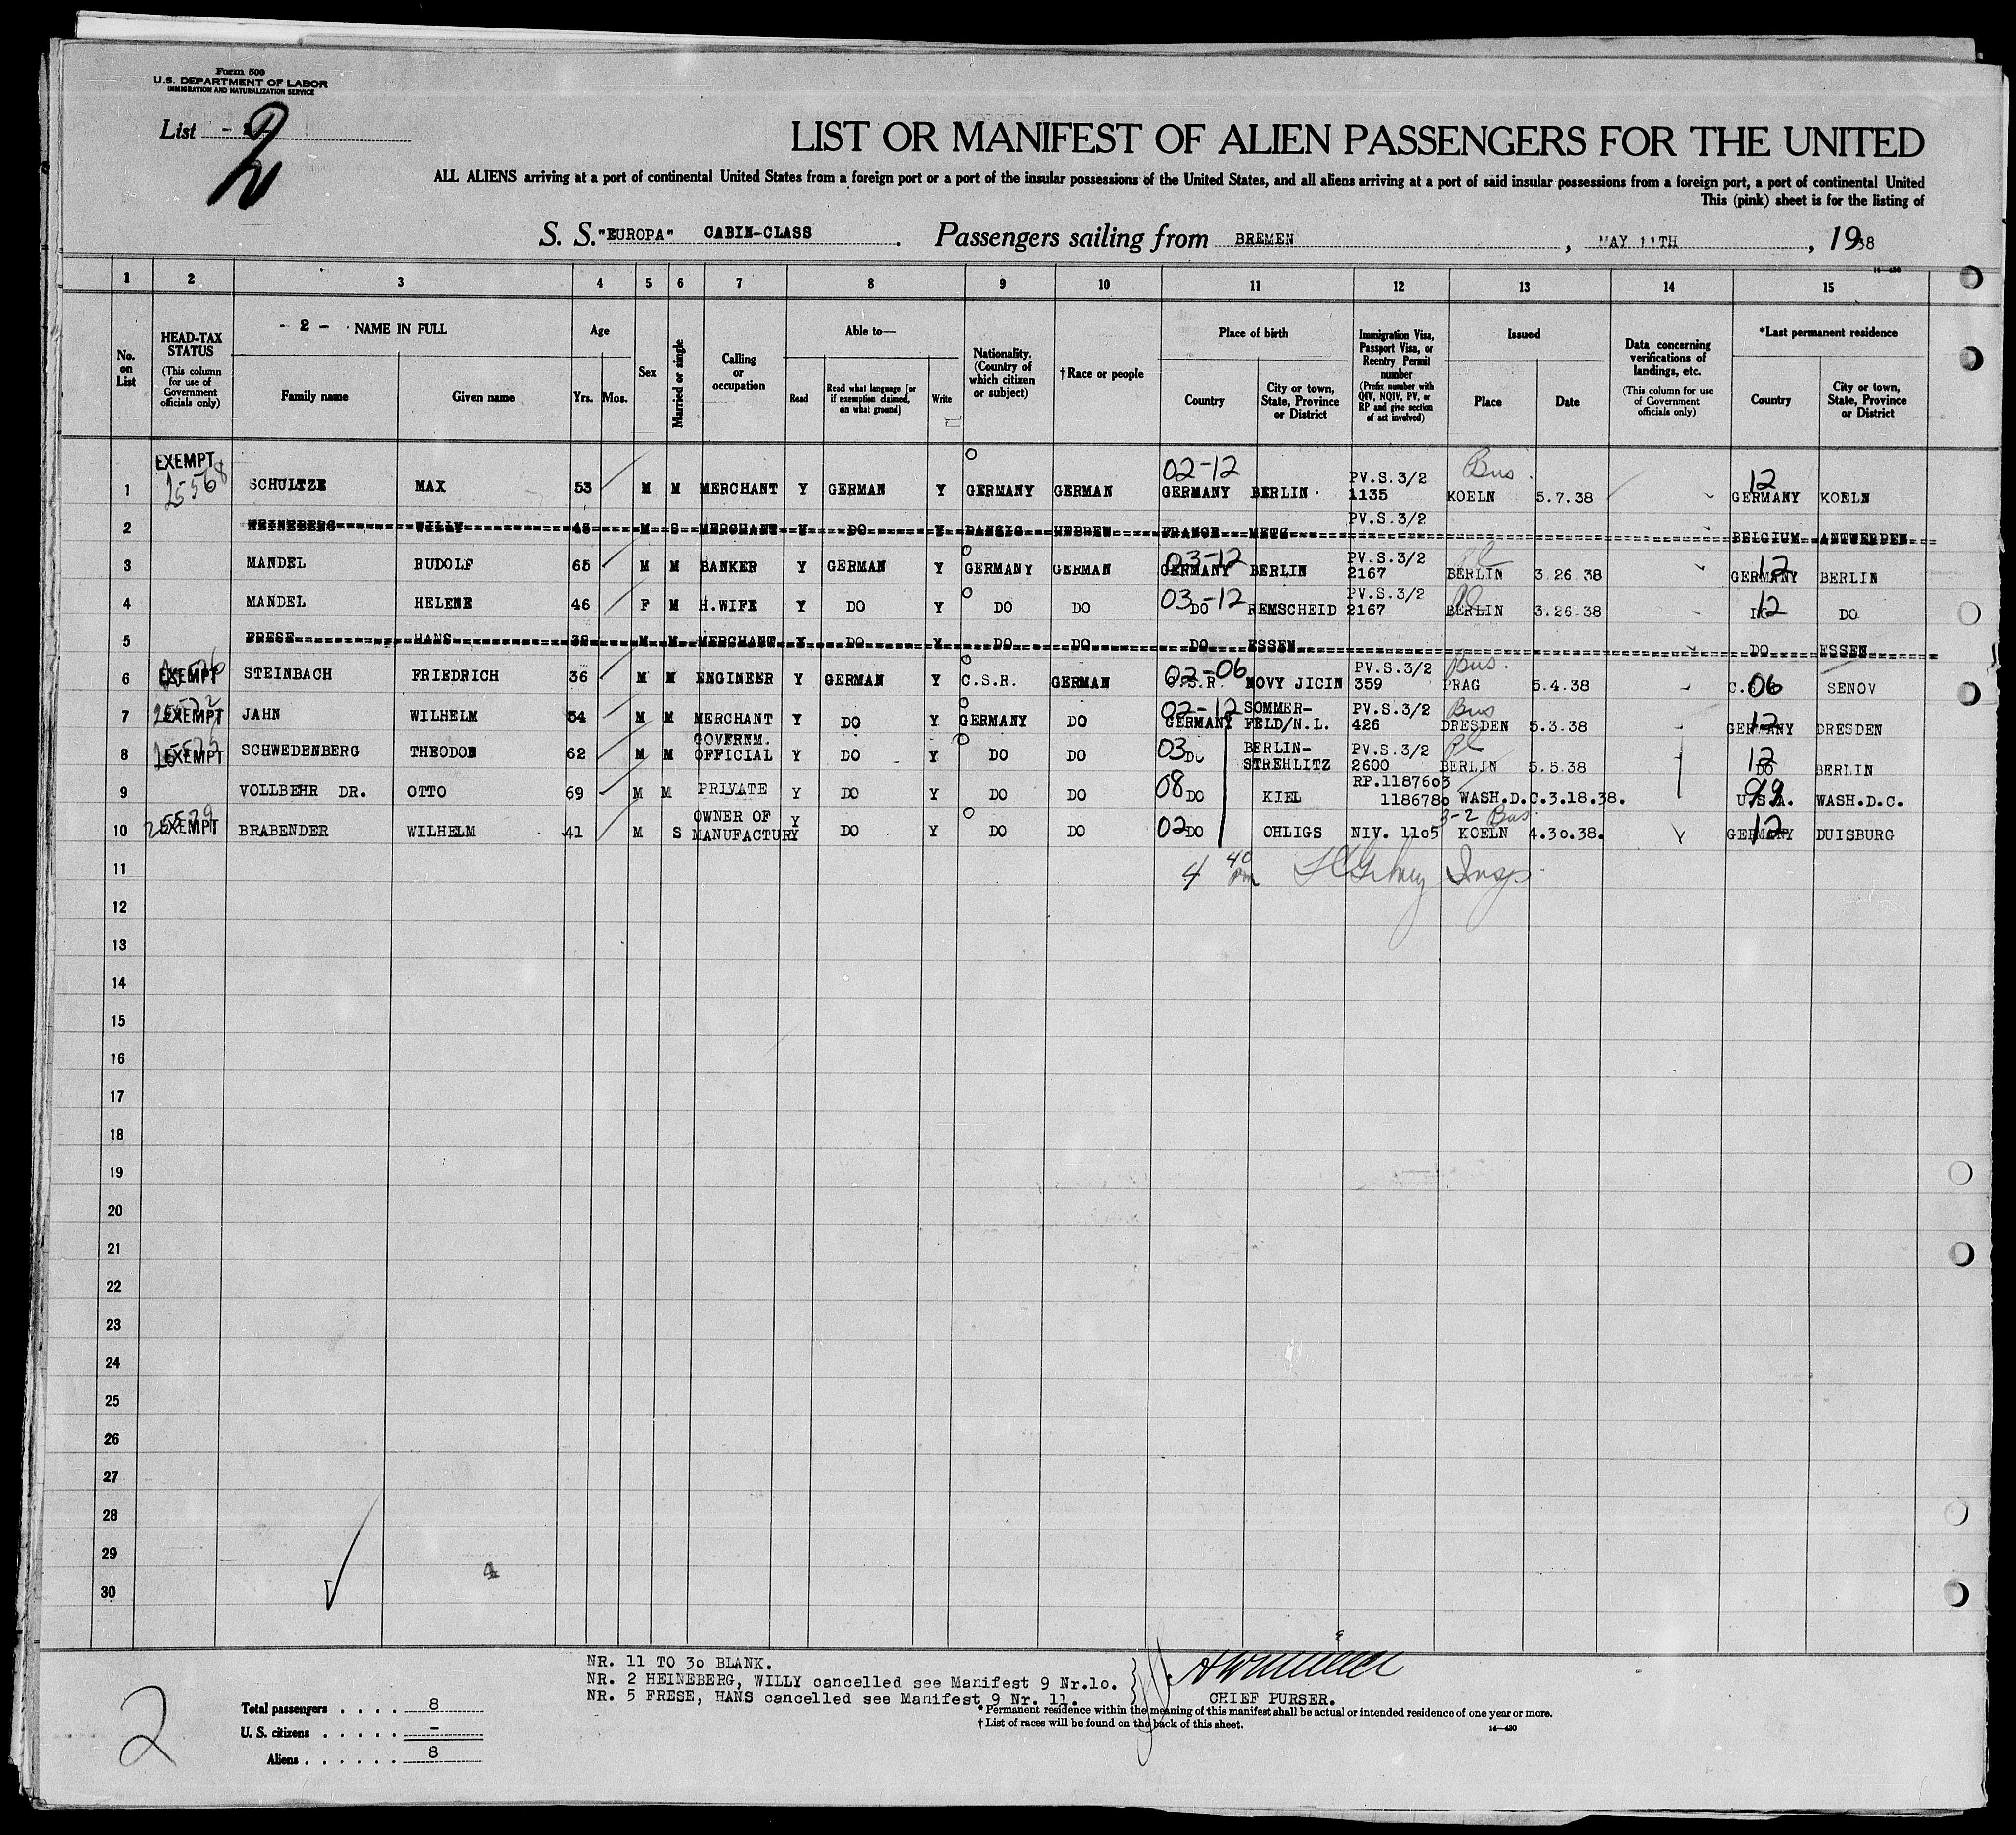 Form 500
U.S. DEPARTMENT OF LABOR
IMMIGRATION AND NATURALIZATION SERVICE
List - 2
2
LIST OR MANIFEST OF ALIEN PASSENGERS FOR THE UNITED
ALL ALIENS arriving at a port of continental United States from a foreign port or a port of the insular possessions of the United States, and all aliens arriving at a port of said insular possessions from a foreign port, a port of continental United
This (pink) sheet is for the listing of
S. S. "EUROPA" CABIN-CLASS . Passengers sailing from BREMEN , MAY 11TH , 1938
14—430
1 2 3 4 5 6 7 8 9 10 11 12 13 14 15
No. on List
HEAD-TAX STATUS (This column for use of Government officials only)
- 2 - NAME IN FULL
Family name Given name
Age
Yrs. Mos.
Sex
Married or single
Calling or occupation
Able to—
Read Read what language [or if exemption claimed, on what ground] Write
Nationality. (Country of which citizen or subject)
†Race or people
Place of birth
Country City or town, State, Province or District
Immigration Visa, Passport Visa, or Reentry Permit number (Prefix number with QIV, NQIV, PV, or RP and give section of act involved)
Issued
Place Date
Data concerning verifications of landings, etc. (This column for use of Government officials only)
*Last permanent residence
Country City or town, State, Province or District
1 EXEMPT 25568 SCHULTZE MAX 53 M M MERCHANT Y GERMAN Y GERMANY GERMAN 02-12 GERMANY BERLIN PV.S.3/2 1135 Bus. KOELN 5.7.38 12 GERMANY KOELN
2 HEINEBERG WILLY 43 M S MERCHANT Y DO Y DANZIG HEBREW FRANCE METZ PV.S.3/2 BELGIUM ANTWERPEN
3 MANDEL RUDOLF 65 M M BANKER Y GERMAN Y GERMANY GERMAN 03-12 GERMANY BERLIN PV.S.3/2 2167 Pl BERLIN 3.26.38 12 GERMANY BERLIN
4 MANDEL HELENE 46 F M H.WIFE Y DO Y DO DO 03-12 DO REMSCHEID PV.S.3/2 2167 Pl BERLIN 3.26.38 12 DO DO
5 FRESE HANS 39 M M MERCHANT Y DO Y DO DO DO ESSEN DO ESSEN
6 EXEMPT STEINBACH FRIEDRICH 36 M M ENGINEER Y GERMAN Y C.S.R. GERMAN 02-06 C.S.R. NOVY JICIN PV.S.3/2 359 Bus. PRAG 5.4.38 06 C.S.R. SENOV
7 EXEMPT JAHN WILHELM 54 M M MERCHANT Y DO Y GERMANY DO 02-12 GERMANY SOMMER-FELD/N.L. PV.S.3/2 426 Bus DRESDEN 5.3.38 12 GERMANY DRESDEN
8 EXEMPT SCHWEDENBERG THEODOR 62 M M GOVERNM. OFFICIAL Y DO Y DO DO 03 DO BERLIN-STREHLITZ PV.S.3/2 2600 Pl BERLIN 5.5.38 12 DO BERLIN
9 VOLLBEHR DR. OTTO 69 M M PRIVATE Y DO Y DO DO 08 DO KIEL RP.1187603 1186780 WASH.D.C. 3.18.38. 99 U.S.A. WASH.D.C.
10 EXEMPT BRABENDER WILHELM 41 M S OWNER OF MANUFACTURY Y DO Y DO DO 02 DO OHLIGS NIV. 1105 3-2 Bus KOELN 4.30.38. 12 GERMANY DUISBURG
11 4 40 pm Insp.
12
13
14
15
16
17
18
19
20
21
22
23
24
25
26
27
28
29
30
NR. 11 TO 30 BLANK.
NR. 2 HEINEBERG, WILLY cancelled see Manifest 9 Nr.10.
NR. 5 FRESE, HANS cancelled see Manifest 9 Nr. 11.
CHIEF PURSER.
* Permanent residence within the meaning of this manifest shall be actual or intended residence of one year or more.
† List of races will be found on the back of this sheet.
14—430
2
Total passengers . . . . 8
U. S. citizens . . . . . -
Aliens . . . . . . 8